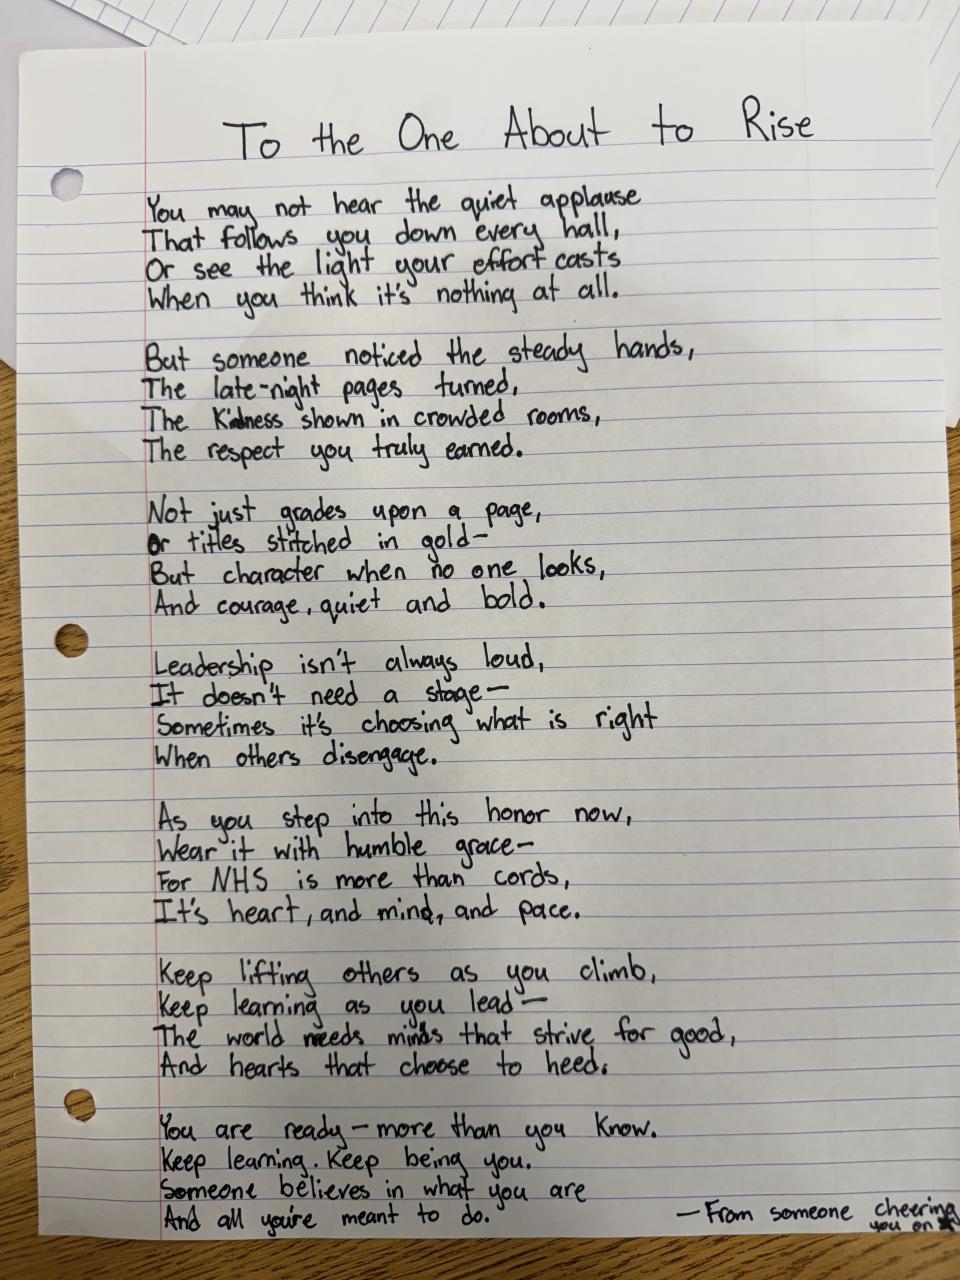 To the One About to Rise
You may not hear the quiet applause
That follows you down every hall,
Or see the light your effort casts
When you think it's nothing at all.
But someone noticed the steady hands,
The late-night pages turned,
The Kidness shown in crowded rooms,
The respect you truly earned.
Not just grades upon a page,
or titles stitched in gold—
But character when no one looks,
And courage, quiet and bold.
Leadership isn't always loud,
It doesn't need a stage—
Sometimes it's choosing what is right
When others disengage.
As you step into this honor now,
Wear it with humble grace—
For NHS is more than cords,
It's heart, and mind, and pace.
Keep lifting others as you climb,
Keep learning as you lead—
The world needs minds that strive for good,
And hearts that choose to heed.
You are ready—more than you know.
Keep learning. Keep being you.
Someone believes in what you are
And all you're meant to do.
—From someone cheering
you on